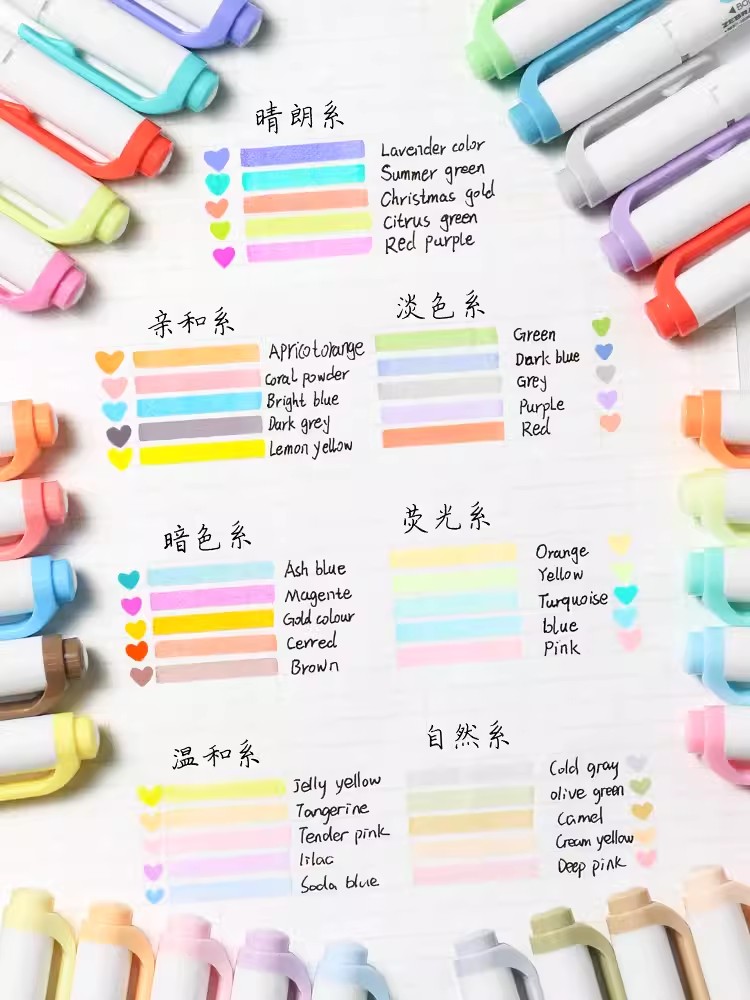 ZEBRA
晴朗系
Lavender color
Summer green
Christmas gold
Citrus green
Red purple
亲和系
Apricotorange
Coral powder
Bright blue
Dark grey
Lemon yellow
淡色系
Green
Dark blue
Grey
Purple
Red
暗色系
Ash blue
Magente
Gold colour
Cerred
Brown
荧光系
Orange
Yellow
Turquoise
blue
Pink
温和系
Jelly yellow
Tangerine
Tender pink
lilac
Soda blue
自然系
Cold gray
olive green
Camel
Cream yellow
Deep pink